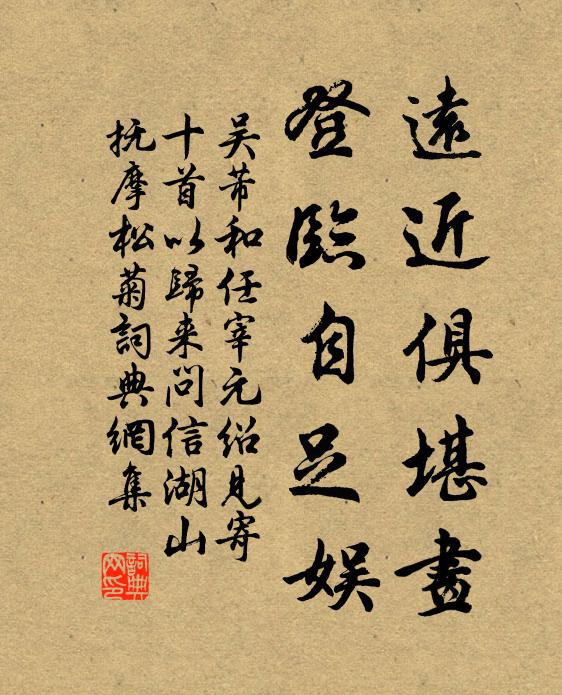 遠近俱堪畫
登臨自足娛
吴芾和任宰元绍見寄
十首以歸来问信湖山
抚摩松菊詞典網集
詞典網印